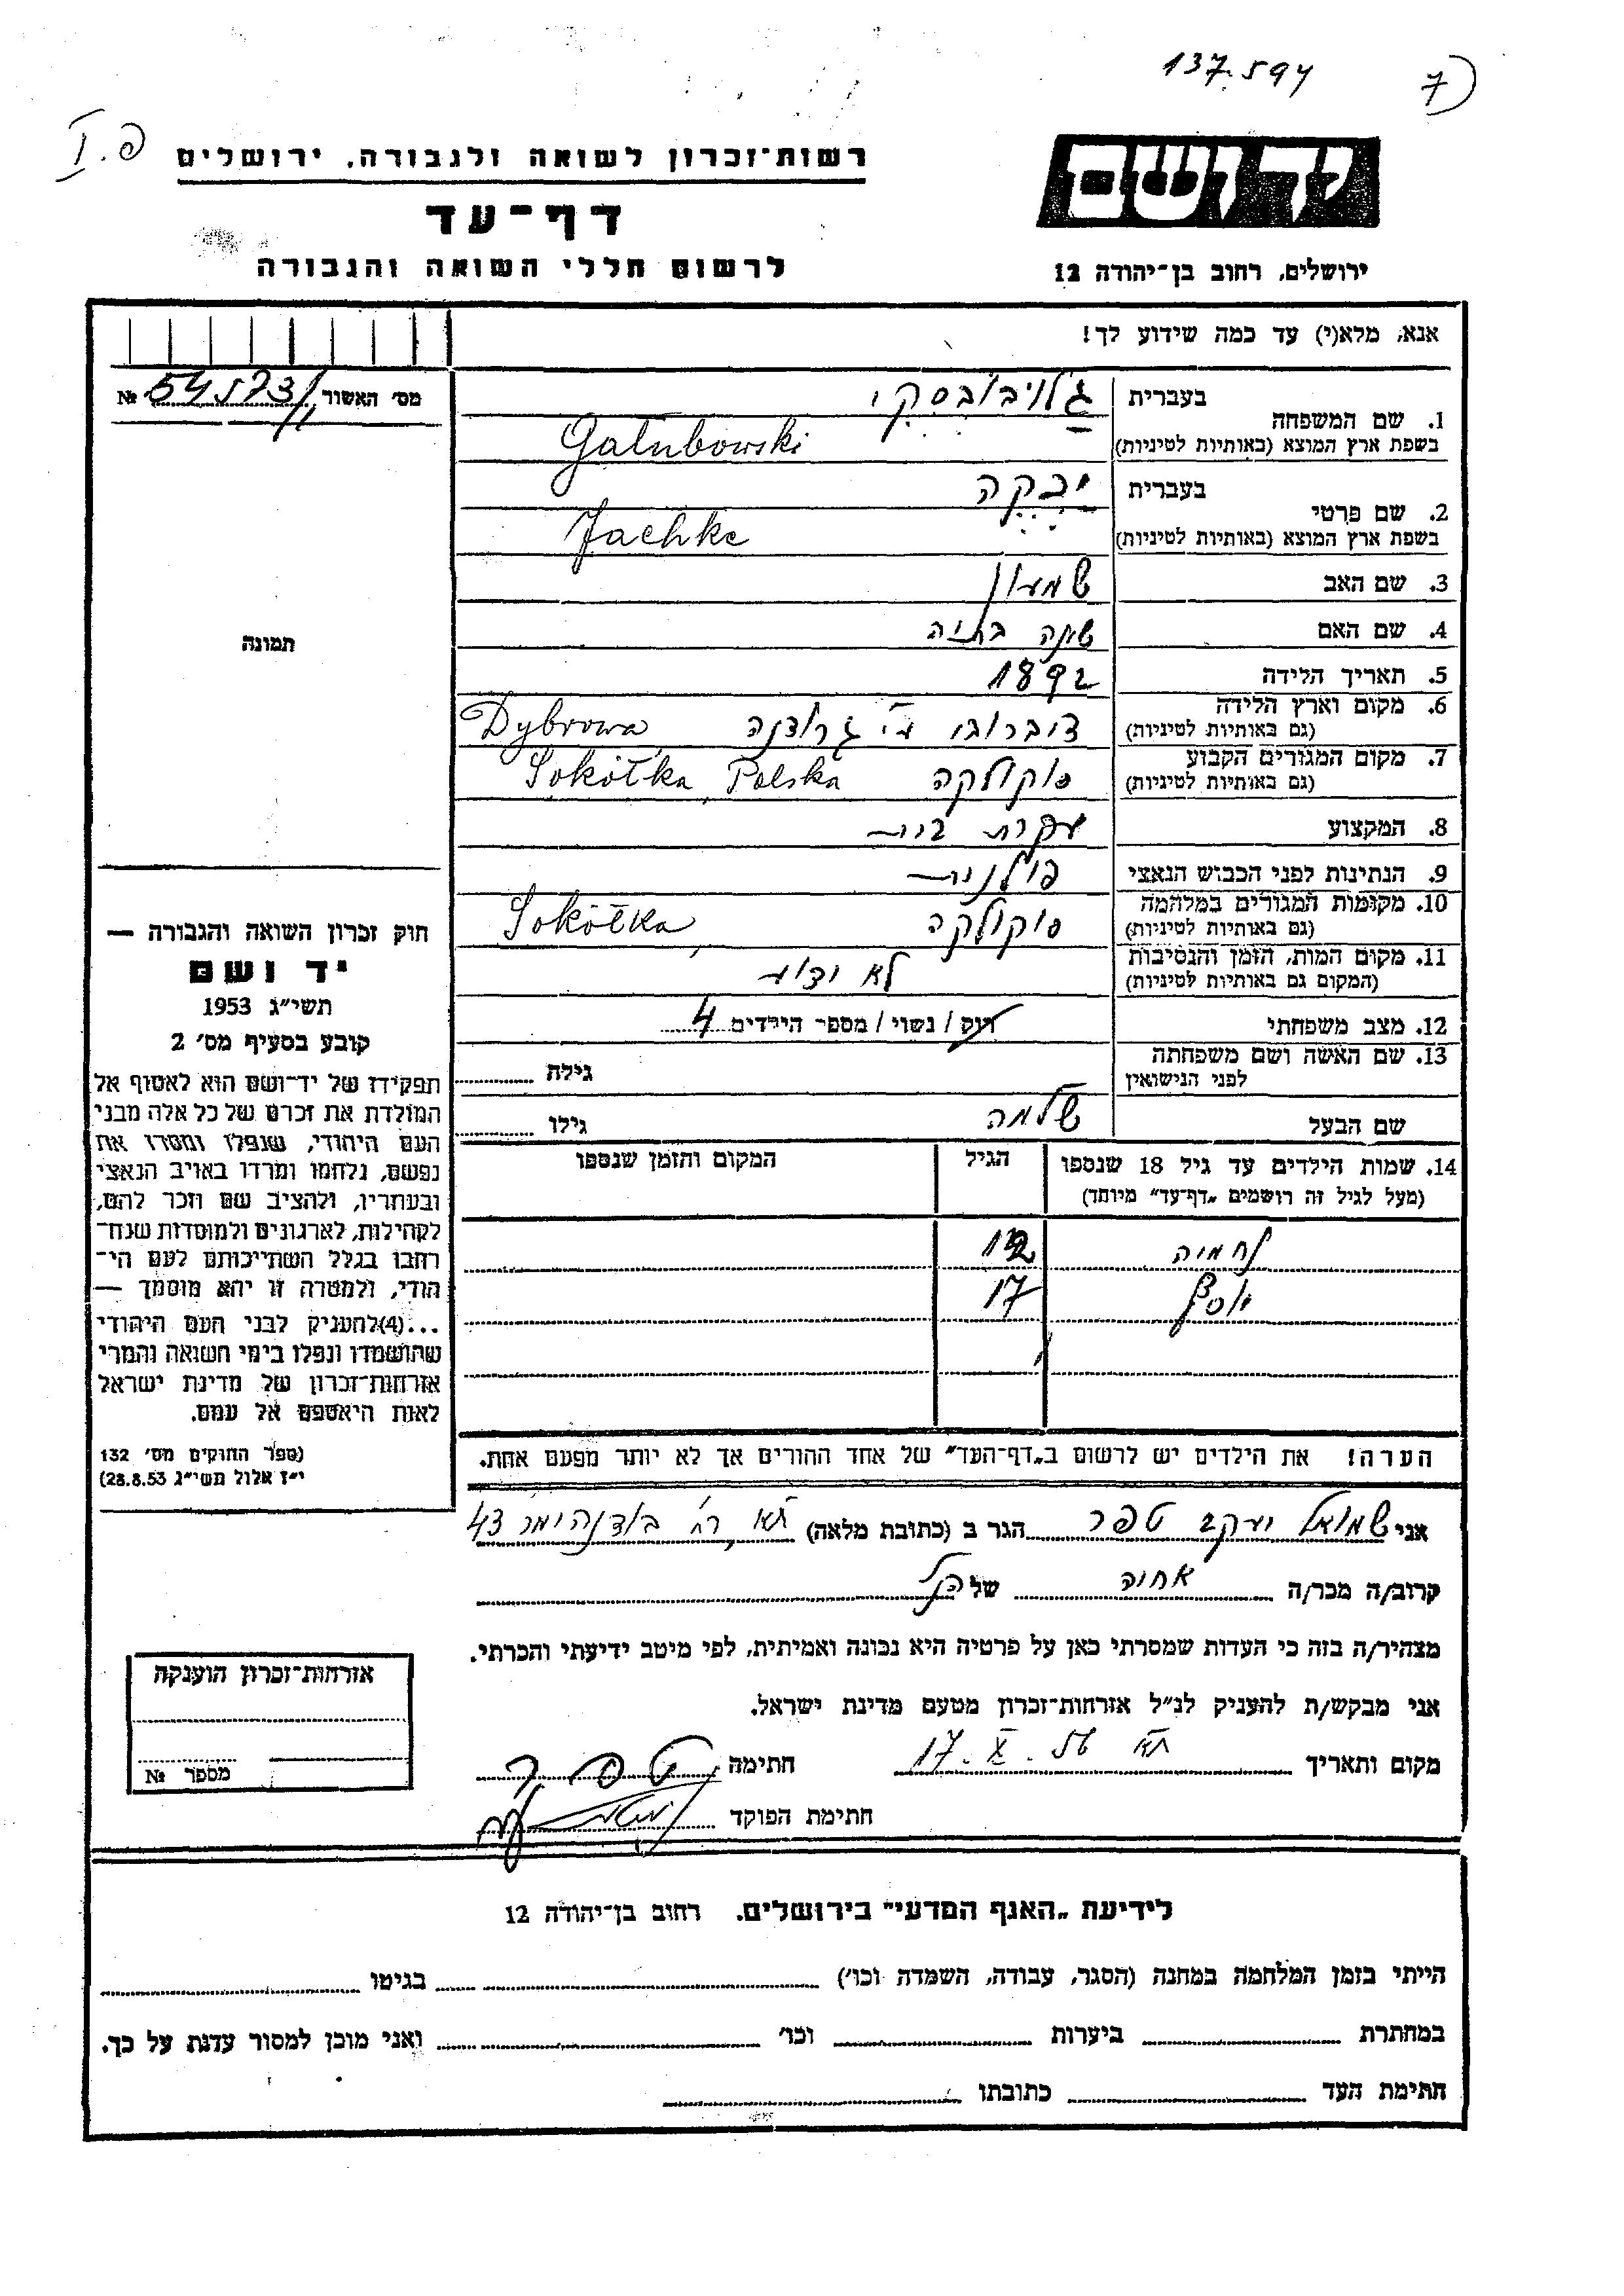 137.594
7
פ. I
רשות־זכרון לשואה ולגבורה, ירושלים
דף־עד
לרשום חללי השואה והגבורה
יד ושם
ירושלים, רחוב בן־יהודה 12
אנא, מלא(י) עד כמה שידוע לך!
מס׳ האשור
1. שם המשפחה
בעברית
בשפת ארץ המוצא (באותיות לטיניות) Galubowski
2. שם פרטי
בעברית
בשפת ארץ המוצא (באותיות לטיניות) Jachke
3. שם האב שמעון
4. שם האם
5. תאריך הלידה 1892
6. מקום וארץ הלידה
(גם באותיות לטיניות) גרודנה Dybrowa
7. מקום המגורים הקבוע
(גם באותיות לטיניות) סוקולקה Sokółka, Polska
8. המקצוע עקרת בית
9. הנתינות לפני הכבוש הנאצי פולנית
10. מקומות המגורים במלחמה
(גם באותיות לטיניות) סוקולקה Sokółka,
11. מקום המות, הזמן והנסיבות
(המקום גם באותיות לטיניות) לא ידוע
12. מצב משפחתי רווק / נשוי / מספר הילדים 4
13. שם האשה ושם משפחתה
לפני הנישואין גילה
שם הבעל שלמה גילו
14. שמות הילדים עד גיל 18 שנספו
(מעל לגיל זה רושמים „דף־עד״ מיוחד)
הגיל
המקום והזמן שנספו
נחמיה
יוסף 17
הערה! את הילדים יש לרשום ב„דף־העד״ של אחד ההורים אך לא יותר מפעם אחת.
תמונה
חוק זכרון השואה והגבורה —
יד ושם
תשי״ג 1953
קובע בסעיף מס׳ 2
תפקידו של יד־ושם הוא לאסוף אל
המולדת את זכרם של כל אלה מבני
העם היהודי, שנפלו ומסרו את
נפשם, נלחמו ומרדו באויב הנאצי
ובעוזריו, ולהציב שם וזכר להם,
לקהילות, לארגונים ולמוסדות שנח־
רבו בגלל השתייכותם לעם הי־
הודי, ולמטרה זו יהא מוסמך —
...(4)להעניק לבני העם היהודי
שהושמדו ונפלו בימי השואה והמרי
אזרחות־זכרון של מדינת ישראל
לאות היאספם אל עמם.
(ספר החוקים מס׳ 132
י״ז אלול תשי״ג 28.8.53)
אני שמואל יעקב טפר הגר ב (כתובת מלאה) תא רח׳ 43
קרוב/ה מכר/ה אחיה של הנ״ל
מצהיר/ה בזה כי העדות שמסרתי כאן על פרטיה היא נכונה ואמיתית, לפי מיטב ידיעתי והכרתי.
אני מבקש/ת להעניק לנ״ל אזרחות־זכרון מטעם מדינת ישראל.
מקום ותאריך תא 17.X.56 חתימה
חתימת הפוקד
אזרחות־זכרון הוענקה
מספר №
לידיעת „האגף המדעי״ בירושלים. רחוב בן־יהודה 12
הייתי בזמן המלחמה במחנה (הסגר, עבודה, השמדה וכו׳) בגיטו
במחתרת ביערות וכו׳ ואני מוכן למסור עדות על כך.
חתימת העד כתובתו